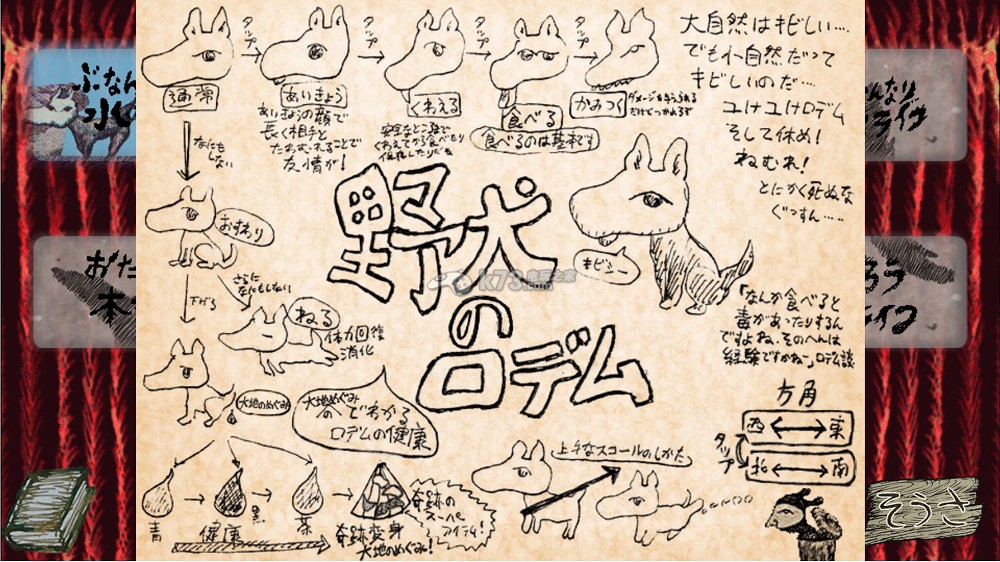 タップ
タップ
タップ
タップ
通常
あいきょう
くわえる
食べる
かみつく
ダメージを与えられる
だけでつかれるぞ
あいきょうの顔で
長く相手と
たわむれることで
友情が!
安全なとこまで
くわえてから食べたり
食べるのは基本です
大自然はキビしい…
でも小自然だって
キビしいのだ…
ユけユけロデム
そして休め!
ねむれ!
とにかく死ぬな
ぐっすん……
なにも
しない
おすわり
下げる
さらに
なにもしない
ねる
体力回復
消化
野犬
の
ロデム
キビシー
k73
.com
「なんか食べると
毒があったりするん
ですよね、そのへんは
経験ですかね」ロデム談
方角
西
東
タップ
北
南
大地のめぐみ
大地のめぐみ
の
へ
でわかる
ロデムの健康
青
健康
黒
茶
奇跡変身
大地のめぐみ!
奇跡の
スーパー
アイテム!
上手なスコールのしかた
ぶなん
水
おた
木
んなり
そうさ